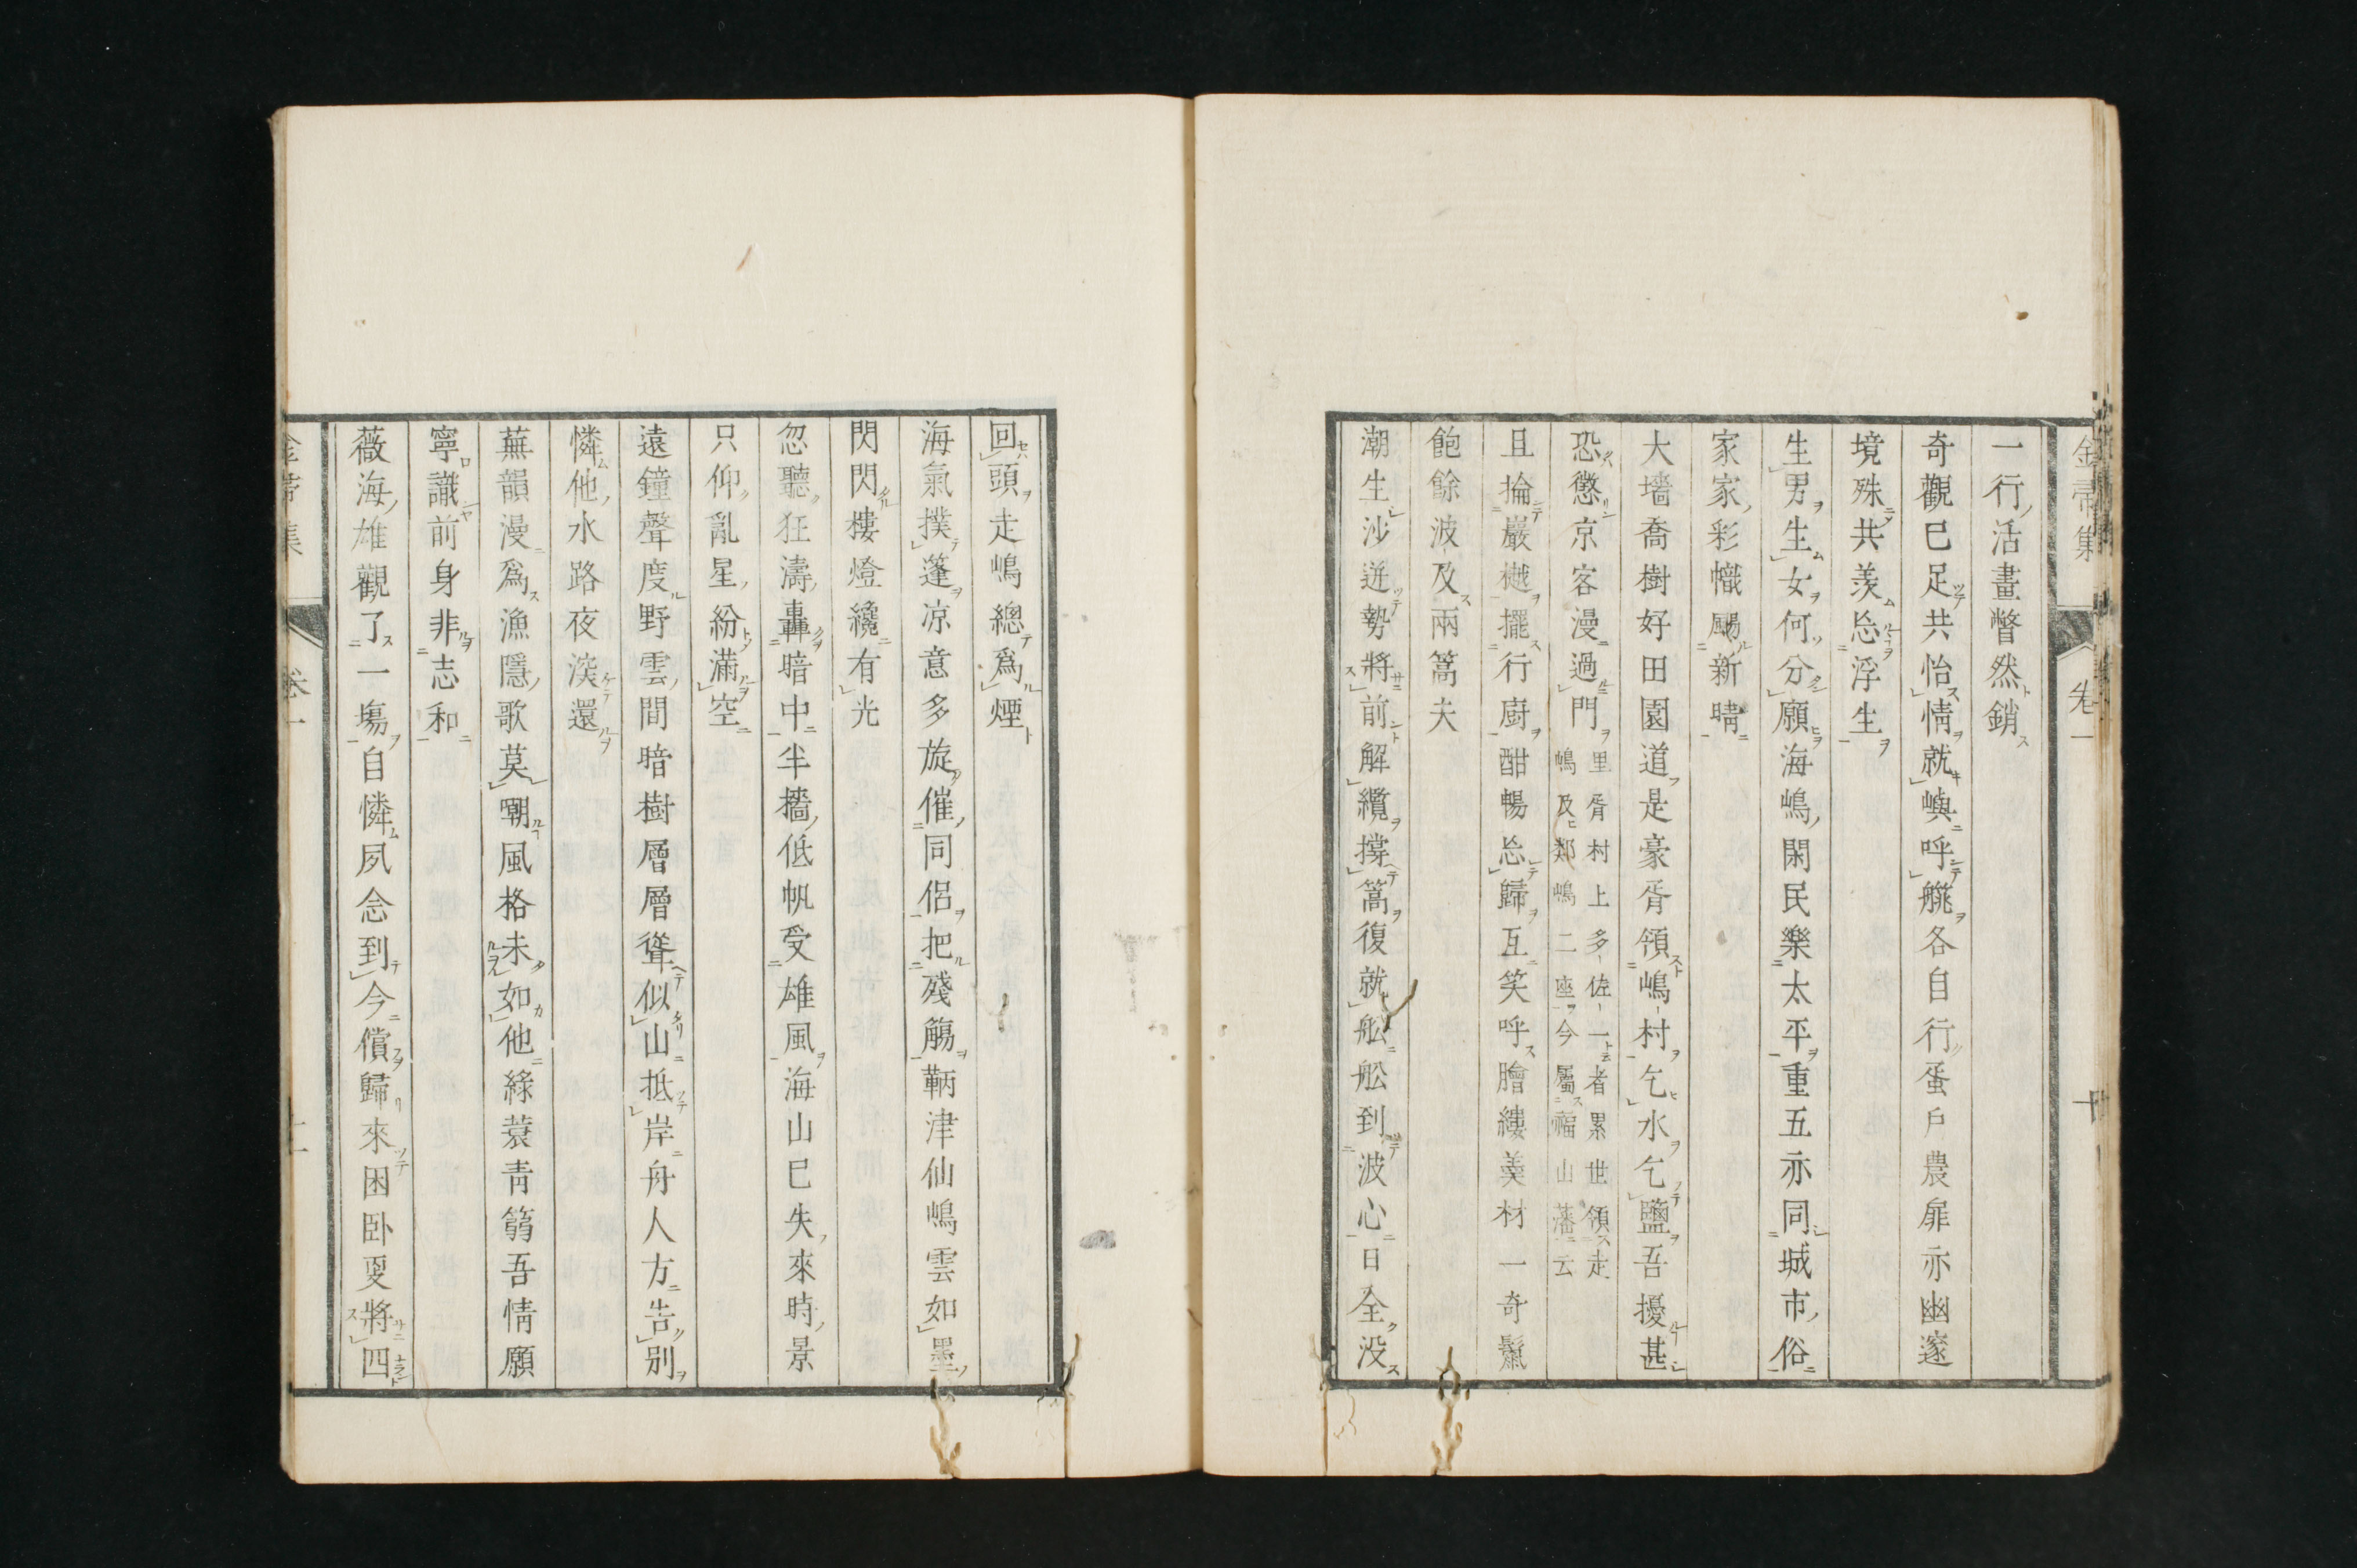 金帚集 卷一 十
一行活畫瞥然銷
奇觀已足共怡情就嶼呼艤各自行蛋戶農扉亦幽邃
境殊共羨忘浮生
生男生女何分願海嶋閑民樂太平重五亦同城市俗
家家彩幟颺新晴
大墻喬樹好田園道是豪胥領嶋村乞水乞鹽吾擾甚
恐懲京客漫過門
里胥村上多佐一者累世領走
嶋及鄰嶋二座今屬福山藩云
且掄巖樾擺行廚酣暢忘歸互笑呼膾縷羹材一奇鬣
飽餘波及兩篙夫
潮生沙逬勢將前解纜撐篙復就舩舩到波心日全没
回頭走嶋總爲煙
海氣撲蓬凉意多旋催同侶把殘觴鞆津仙嶋雲如墨
閃閃樓燈纔有光
忽聽狂濤轟暗中半檣低帆受雄風海山已失來時景
只仰亂星紛滿空
遠鐘聲度野雲間暗樹層層聳似山抵岸舟人方告別
憐他水路夜深還
蕪韻漫爲漁隱歌莫嘲風格未如他綠蓑靑篛吾情願
寧識前身非志和
薇海雄觀了一塲自憐夙念到今償歸來困卧更將四
金帚集 卷一